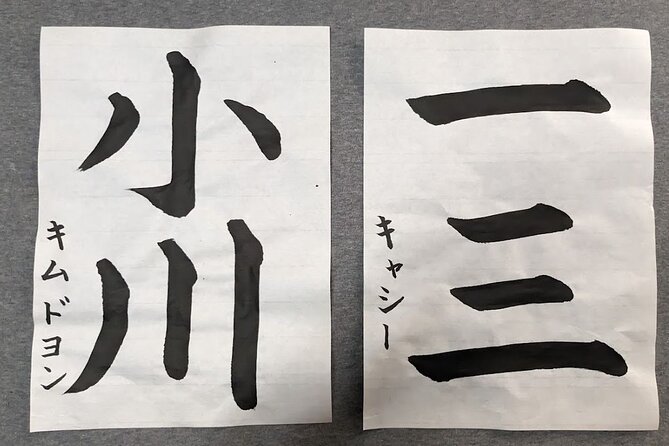 小川
キムドヨン
一三
キャシー